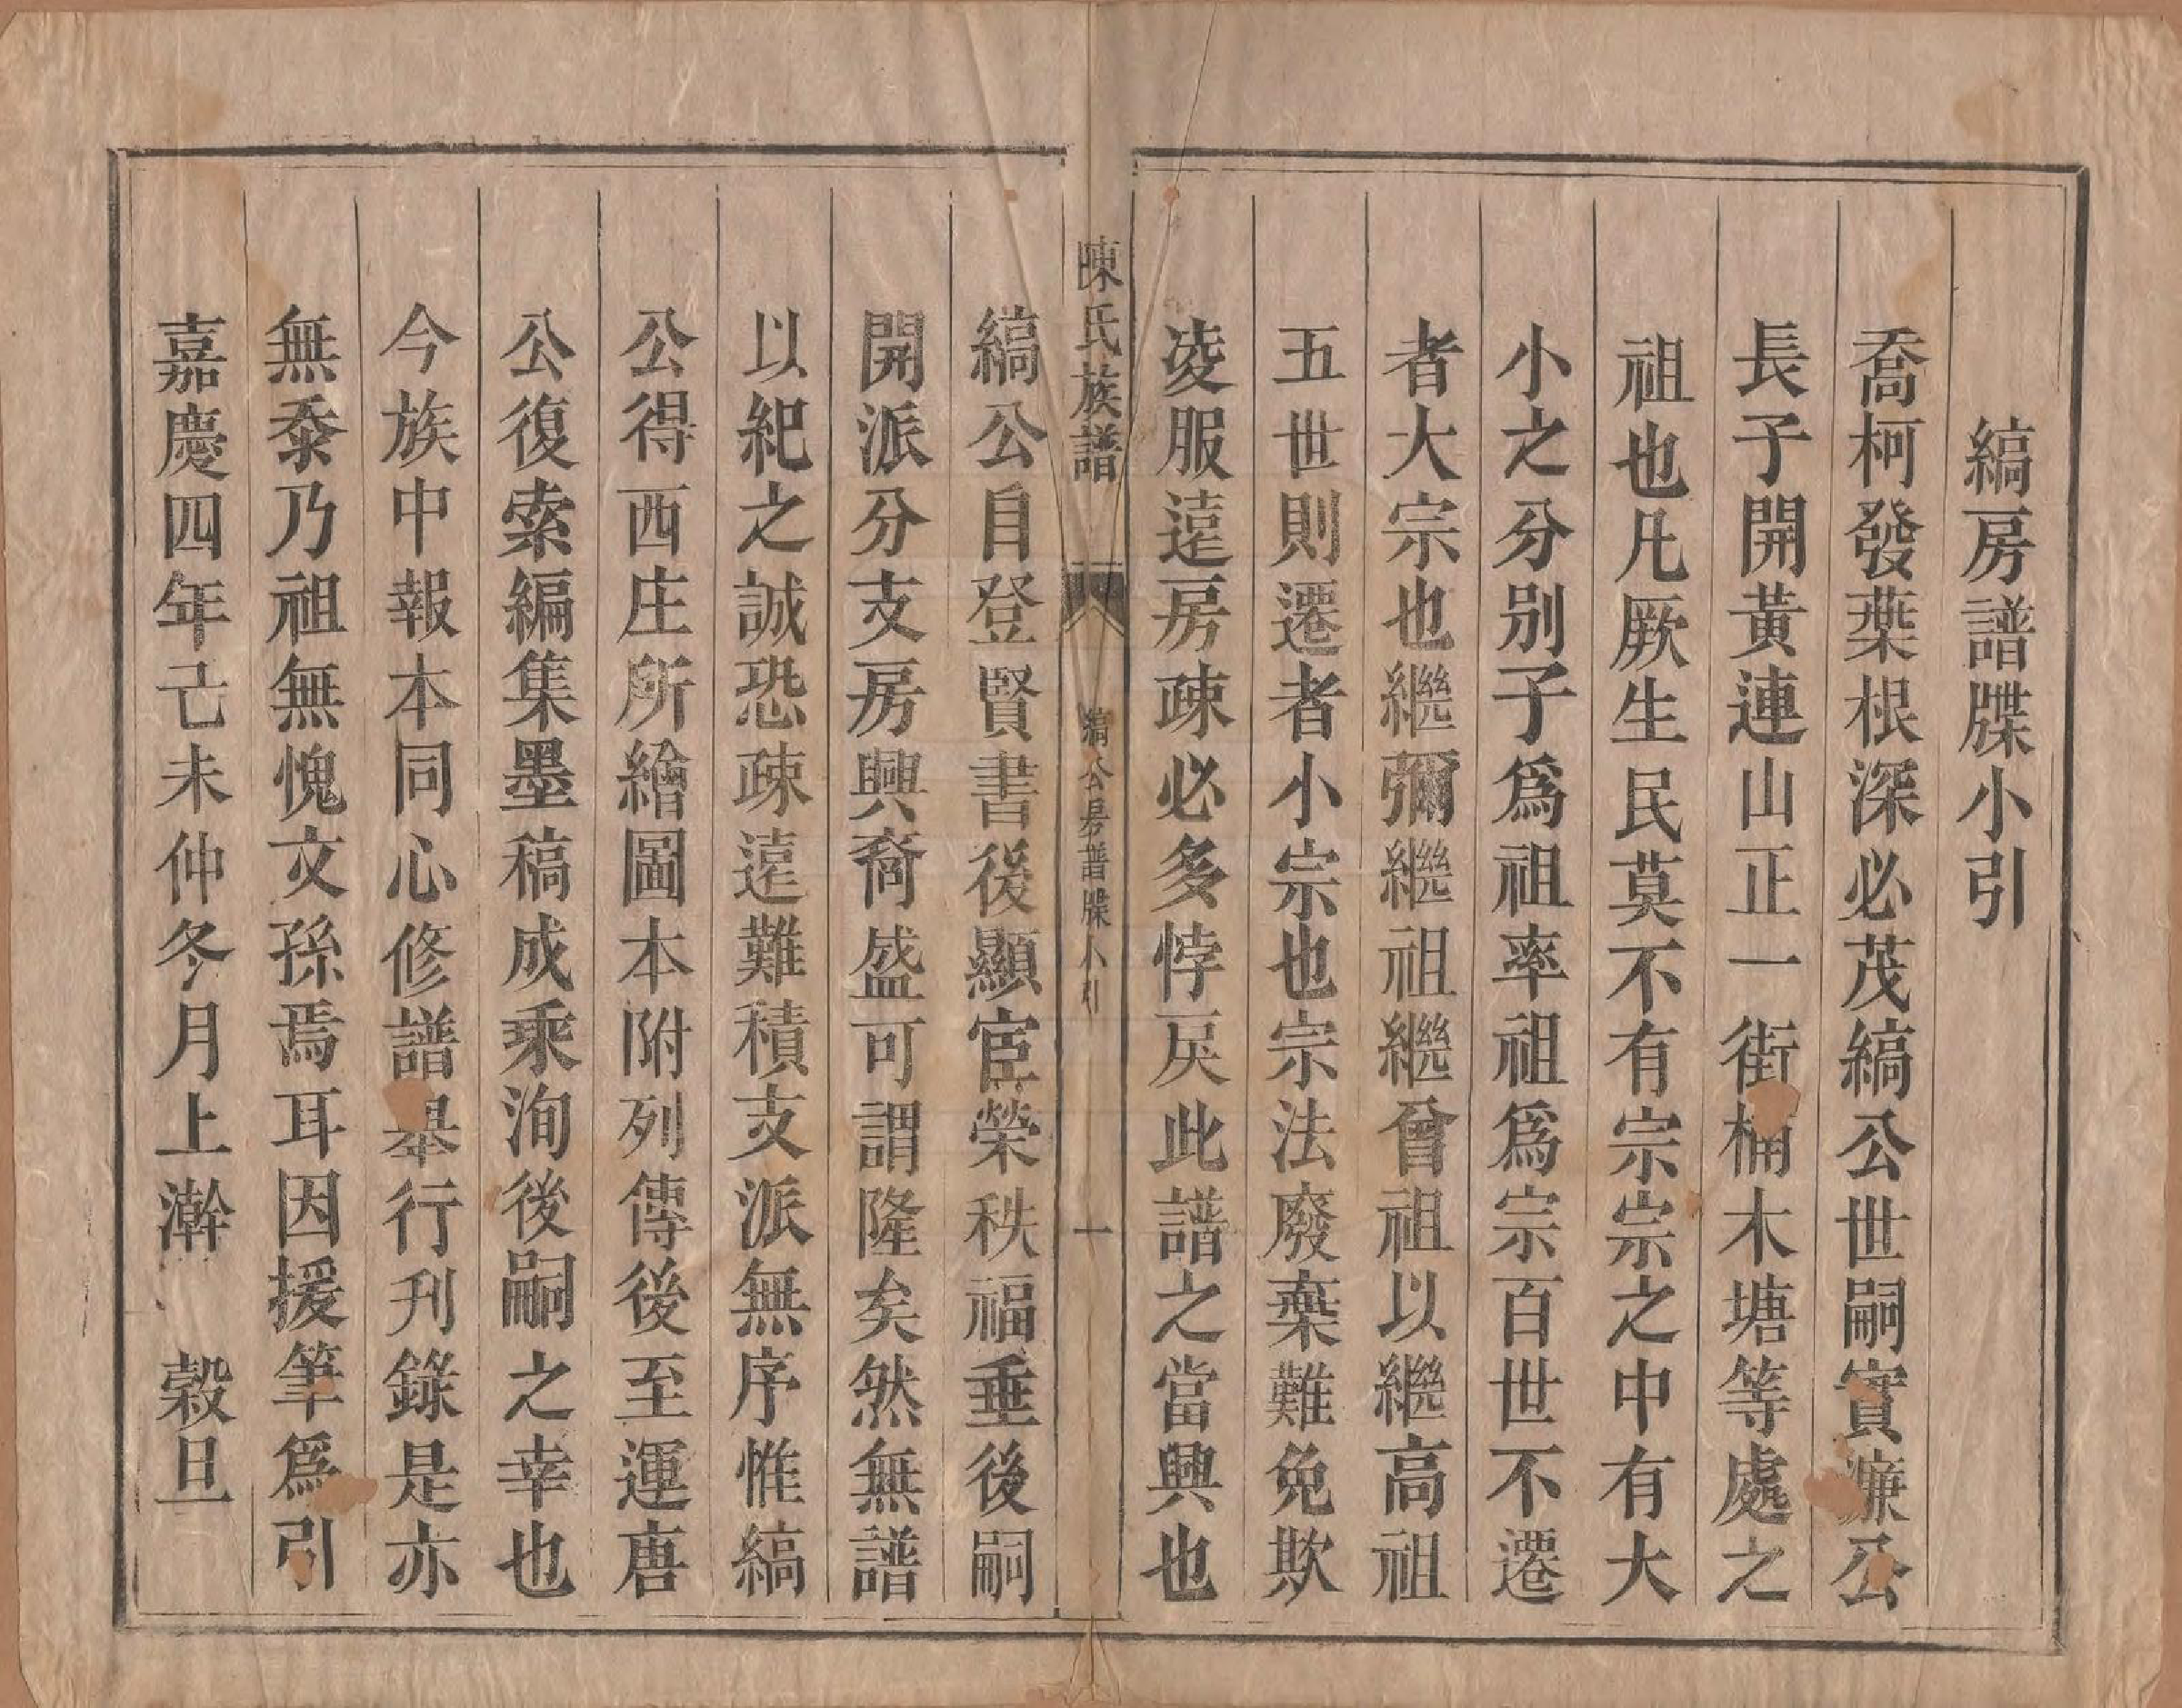 縞房譜牒小引
喬柯發葉根深必茂縞公世嗣實濂公
長子開黃連山正一街桷木塘等處之
祖也凡厥生民莫不有宗宗之中有大
小之分别子爲祖率祖爲宗百世不遷
者大宗也繼彌繼祖繼曾祖以繼高祖
五世則遷者小宗也宗法廢棄難免欺
凌服遠房疎必多悖戾此譜之當興也
陳氏族譜
縞公房譜牒小引
一
縞公自登賢書後顯宦榮秩福垂後嗣
開派分支房興裔盛可謂隆矣然無譜
以紀之誠恐疎遠難積支派無序惟縞
公得西庄所繪圖本附列傳後至運唐
公復索編集墨稿成乘洵後嗣之幸也
今族中報本同心修譜舉行刋錄是亦
無忝乃祖無愧文孫焉耳因援筆爲引
嘉慶四年己未仲冬月上澣 穀旦